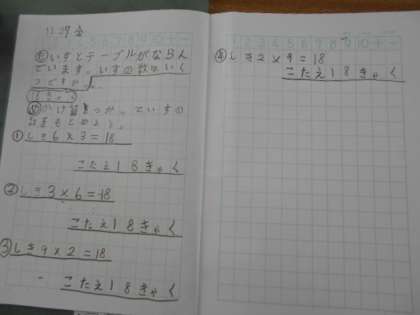 11.29 金
も いすとテーブルがならん
でいます。いすの数はいく
つですか。
め かけ算をつかっていすの
数をもとめよう。
① しき6×3=18
こたえ18きゃく
② しき3×6=18
こたえ18きゃく
③ しき9×2=18
こたえ18きゃく
④ しき2×9=18
こたえ18きゃく